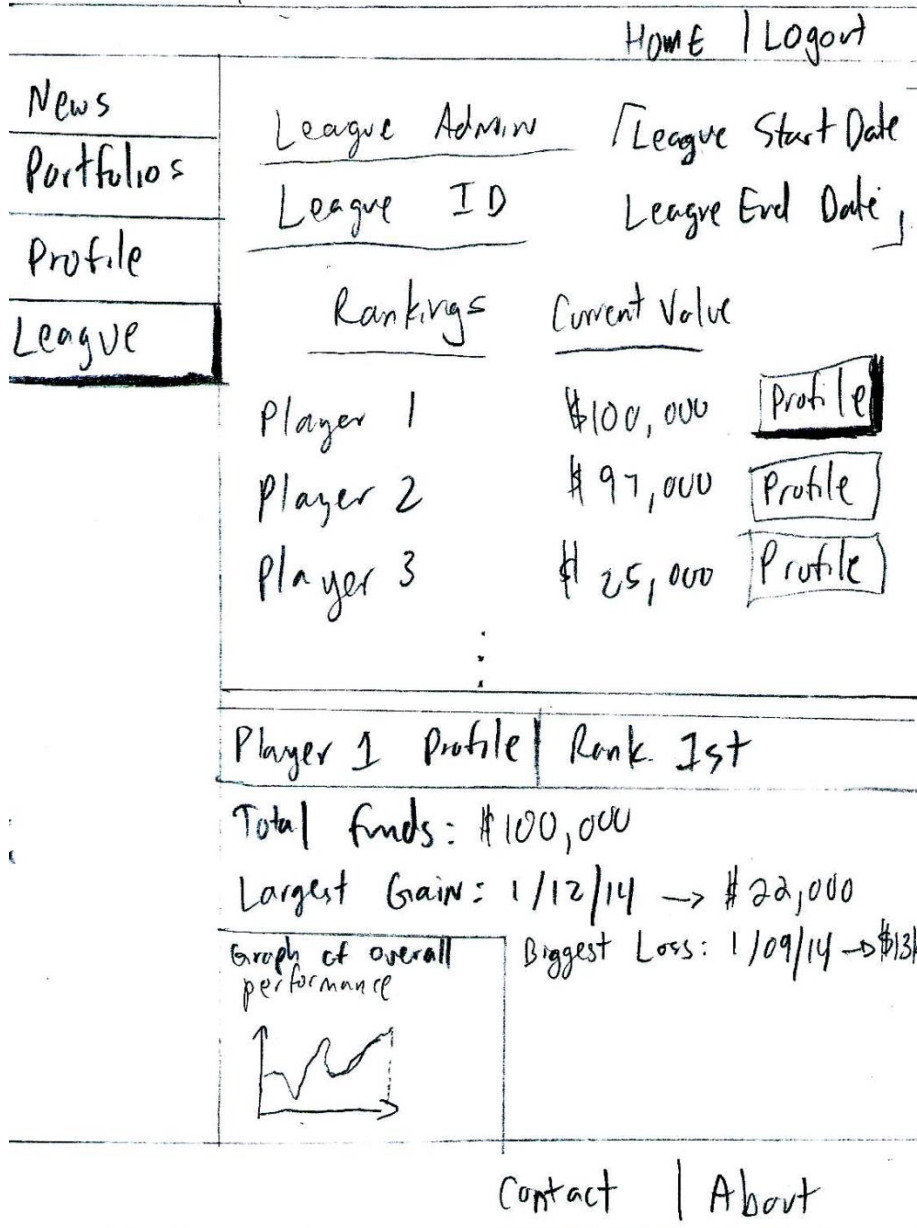 Home | Logout
News
Portfolios
Profile
League
League Admin
League Start Date
League ID
League End Date
Rankings Current Value
Player 1 $100,000 Profile
Player 2 $97,000 Profile
Player 3 $25,000 Profile
Player 1 Profile | Rank 1st
Total Funds: $100,000
Largest Gain: 1/12/14 → $22,000
Biggest Loss: 1/09/14 → $13k
Graph of overall
performance
Contact | About